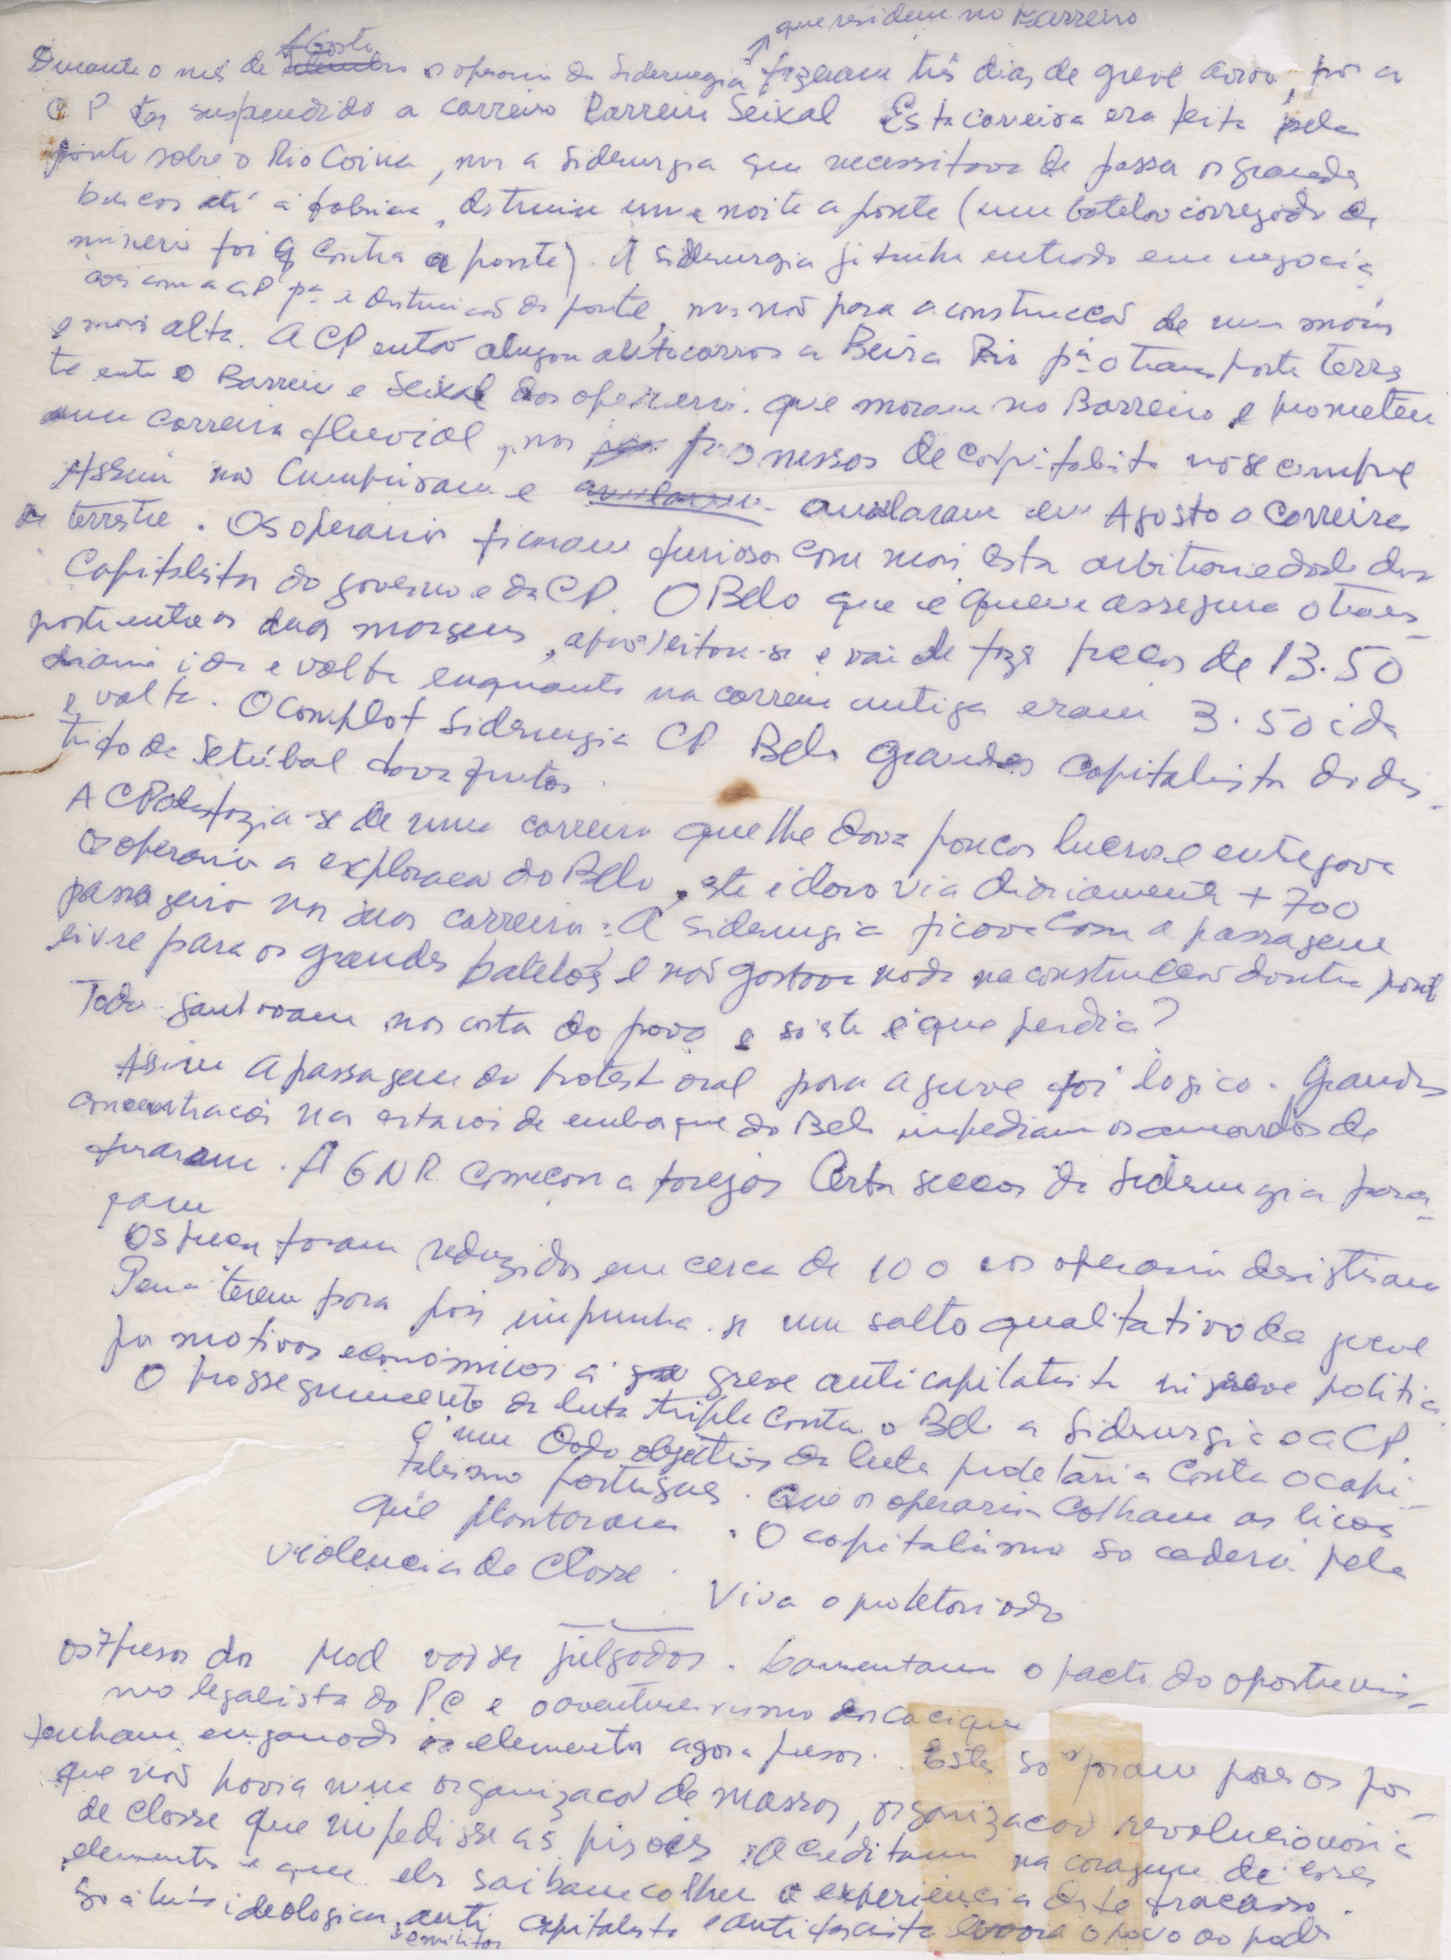 que residem no Barreiro
Agosto
Durante o mês de os operarios da Siderurgia fizeram três dias de greve , pois a
CP ter suspendido a carreira Barreiro Seixal Esta carreira era feita pela
ponte sobre o Rio Coina, mas a Siderurgia que necessitava de passar os grandes
barcos até á fabrica, destruiu uma noite a ponte (um batelão carregado de
minerio foi q contra a ponte). A Siderurgia já tinha entrado em negocia
ções com a CP pª a destruição da ponte, mas não para a construcção de uma mais
e mais alta. A CP então alugou autocarros a Beira Rio pª o transporte terres
te entre o Barreiro e Seixal dos operarios que moram no Barreiro e prometeu
uma carreira fluvial, mas promessas de capitalista não se cumpre
Assim não cumpriram e anularam em Agosto a carreira
terrestre. Os operarios ficaram furiosos com mais esta arbitrariedade dos
Capitalistas do governo e da CP. O Belo que é quem assegura o trans-
porte entre as duas margens, aproveitou-se e vai de fazer preços de 13.50
diarios ida e volta enquanto na carreira antiga eram 3.50 ida
e volta. O complot Siderurgia CP Belo grandes capitalistas do dis-
trito de Setúbal dava frutos.
A CP desfazia-se de uma carreira que lhe dava poucos lucros e entregava
os operarios a exploracão do Belo, este é claro via diariamente + 700
passageiros nas suas carreiras: A Siderurgia ficava com a passagem
livre para os grandes batelões e não gastava nada na construcção doutra ponte
Todos ganhavam nas costas do povo e só este é que perdia?
Assim a passagem do protesto oral para a greve foi logico. Grandes
concentracões nas estacões de embarque do Belo impediam os amarelos de
furarem. A GNR começou a forejar Certas secções da Siderurgia para-
ram
Os precos foram reduzidos em cerca de 100 e os operarios desistiram
Pena terem parado pois impunha-se um salto qualitativo da greve
por motivos economicos á greve anticapitalista a greve politica.
O prosseguimento da luta tripla contra o Belo a Siderurgia e a CP.
é um dado objectivo da luta proletaria contra o capi-
talismo português. Que os operarios colham as licões
que plantaram. O capitalismo só caderá pela
violencia de Classe.
Viva o proletariado
os 7 presos da Mod vão ser julgados. Lamentamos o facto do oportunis-
mo legalista do PC e o aventureirismo dos caciques
tenham enganado os elementos agora presos. Estes só foram presos por-
que não havia uma organização de massas, organização revolucionária
de classe que impedisse as prisões. Acreditamos na coragem de esses
elementos e que eles saibam colher a experiencia deste fracasso.
Só a luta ideologica, anti capitalista e antifascista levará o povo ao poder
e militar